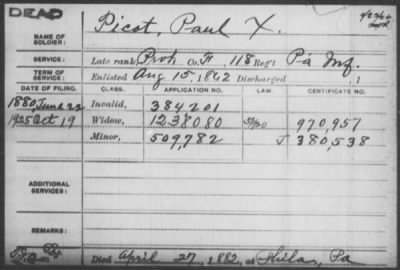 DEAD
NAME OF SOLDIER: Picot, Paul X.
SERVICE: Late rank, Priv. Co. F, 118 Reg't Pa Inf.
TERM OF SERVICE: Enlisted Aug 15, 1862 Discharged , 1
DATE OF FILING. CLASS. APPLICATION NO. LAW. CERTIFICATE NO.
1880 June 22 Invalid, 384201
1925 Oct 19 Widow, 1238080 970,957
Minor, 509,782 J 380,538
ADDITIONAL SERVICES:
REMARKS:
Died April 27, 1882, at Phila, Pa